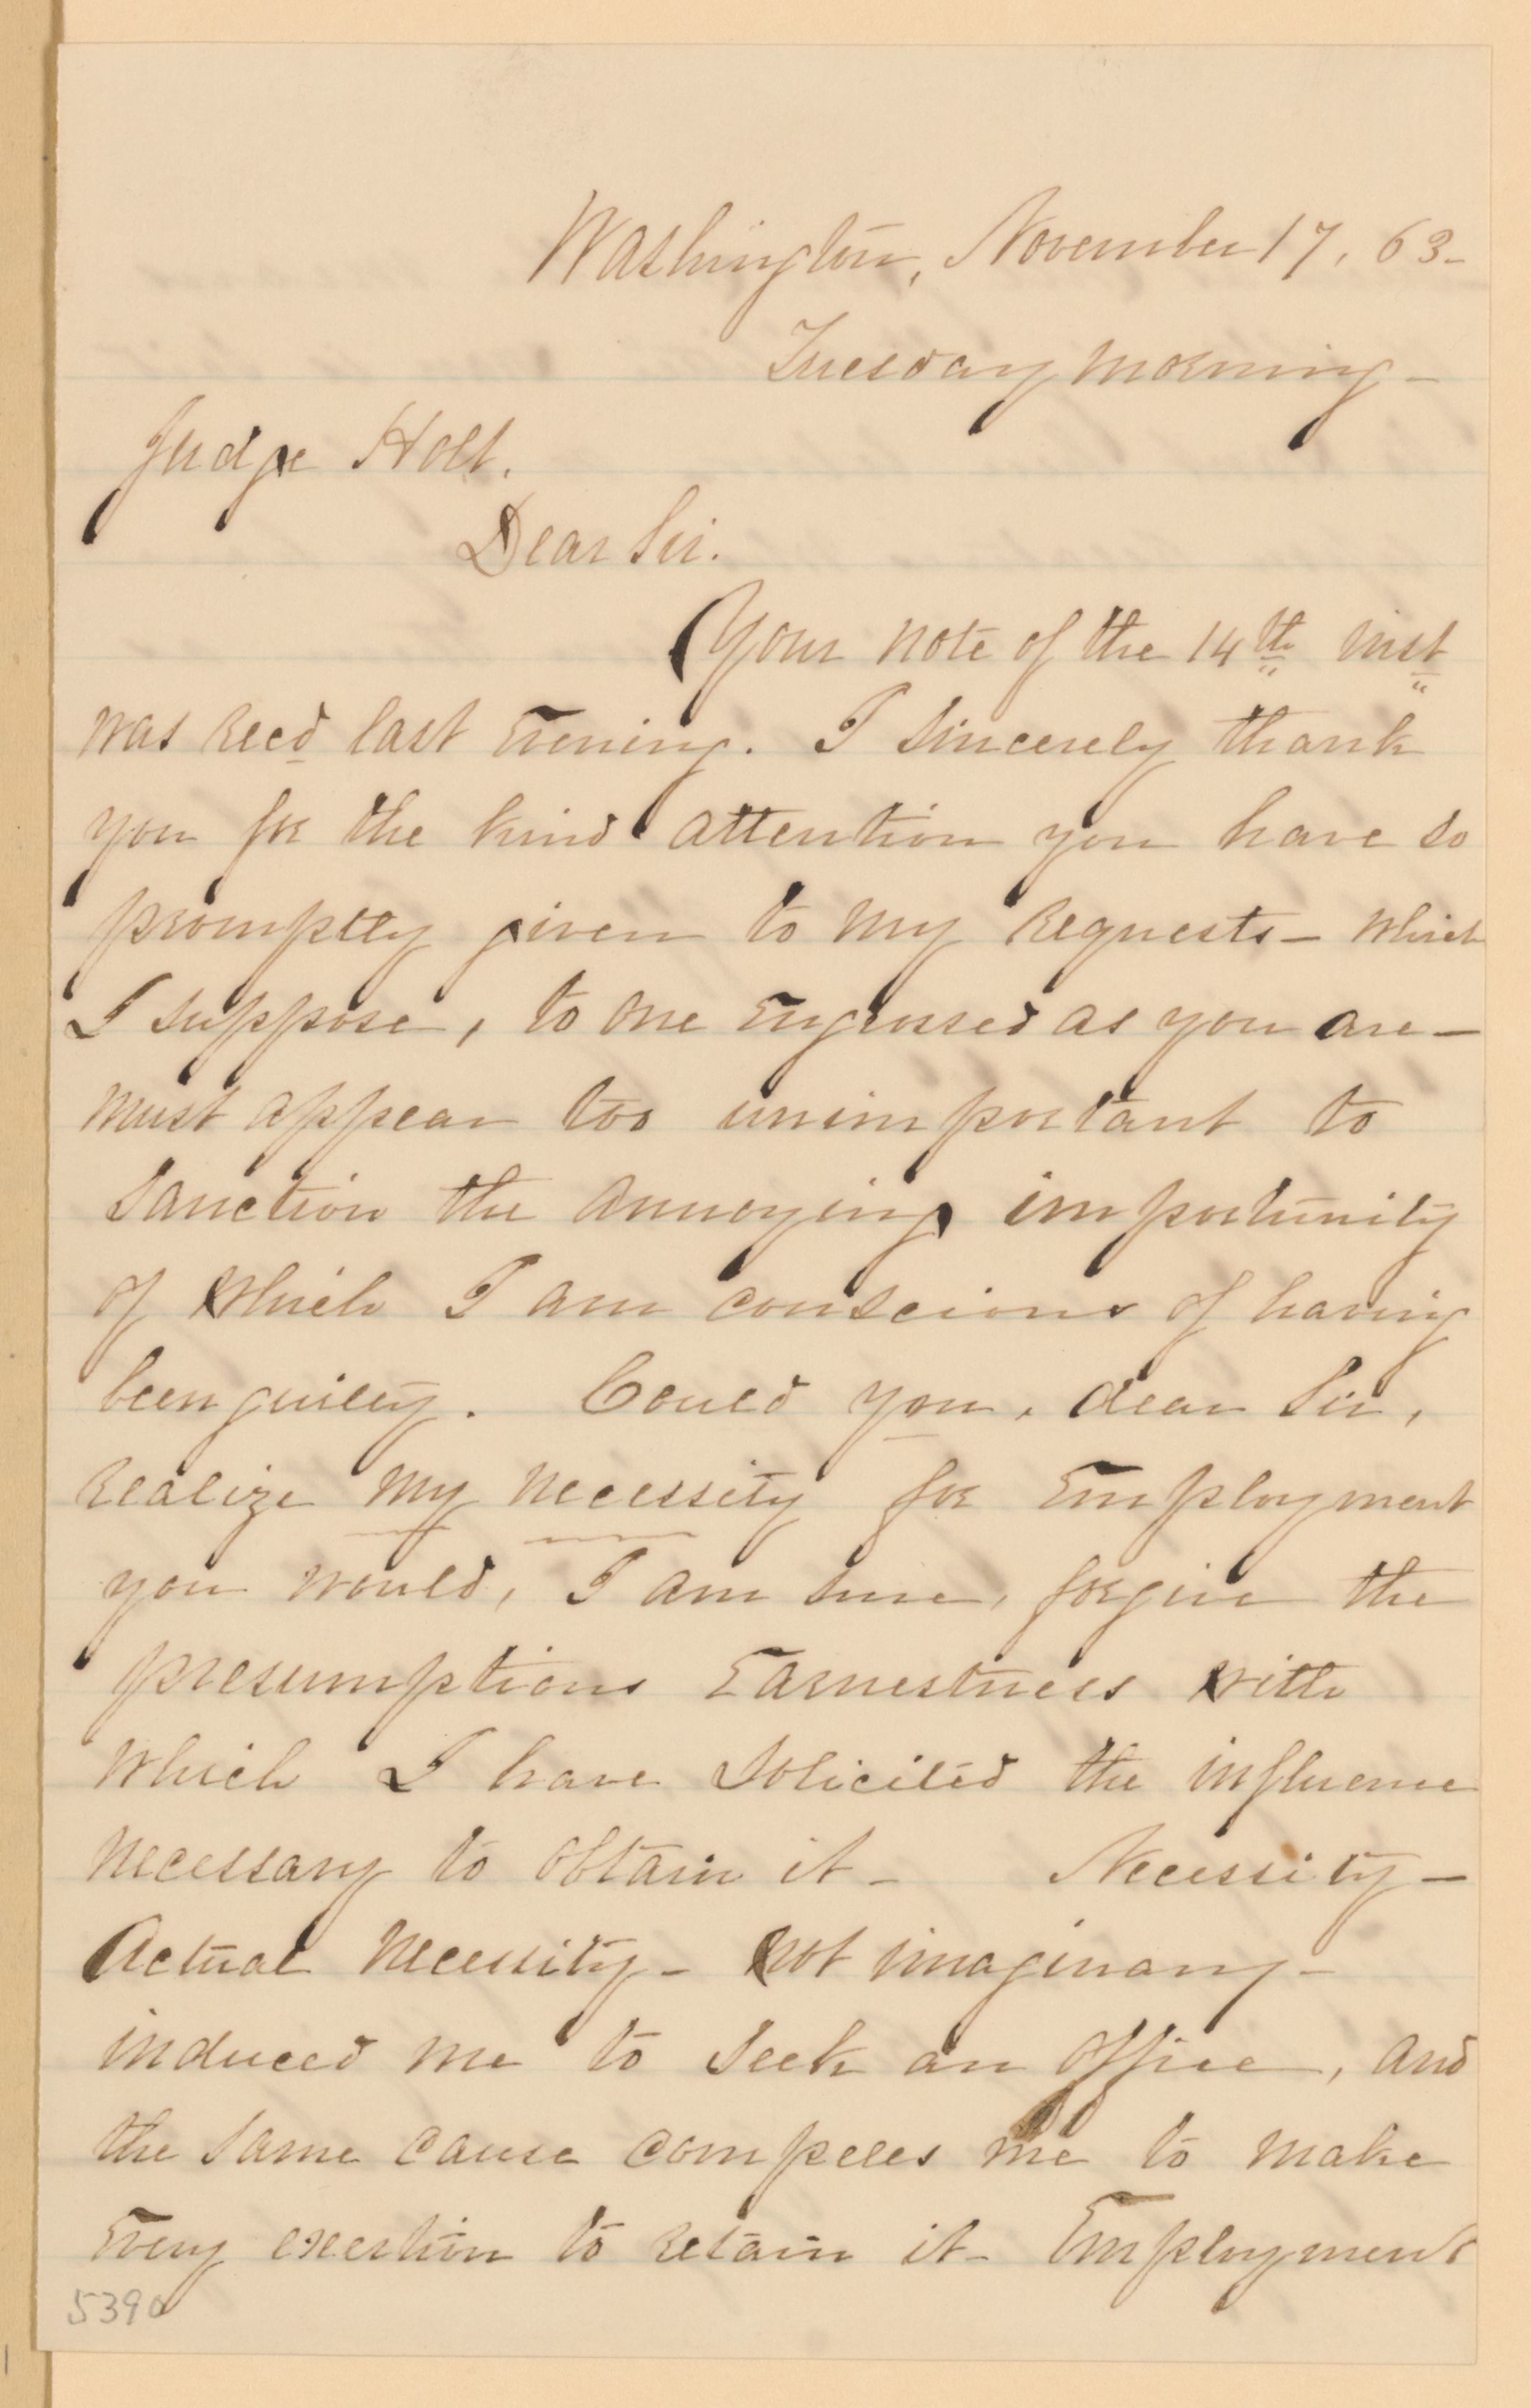 Washington, November 17, 63-
Tuesday morning-
Judge Holt.
Dear Sir.
Your note of the 14th inst
was Recd last Evening. I sincerely thank
you for the kind attention you have so
promptly given to my Requests- which
I suppose, to one Engrossed as you are-
must appear too unimportant to
sanction the annoying importunity
of which I am conscious of having
been guilty. Could you, dear Sir,
Realize my necessity for Employment
you would, I am sure, forgive the
presumptious Earnestness with
which I have solicited the influence
necessary to obtain it- Necessity-
Actual necessity- not imaginary-
induced me to seek an office, and
the same cause compells me to make
Every exertion to Retain it- Employment
5390